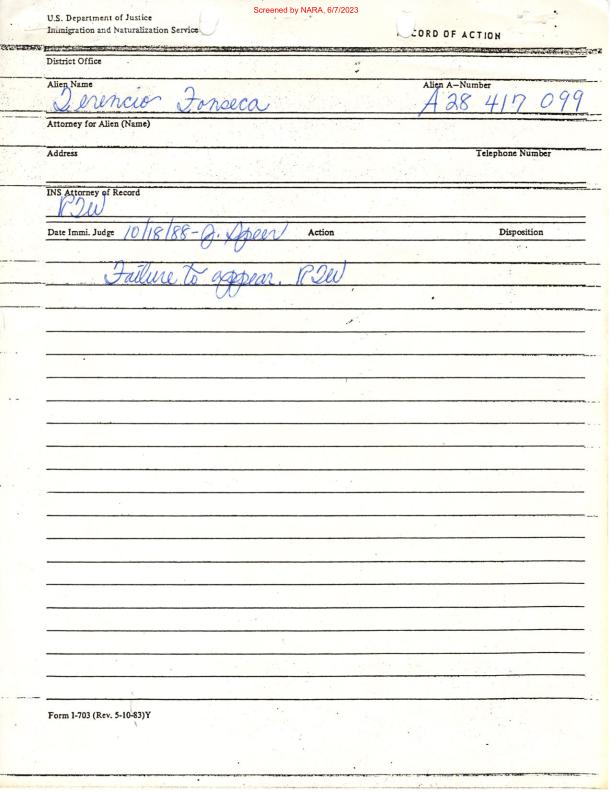 Screened by NARA, 6/7/2023
U.S. Department of Justice
Immigration and Naturalization Service
CORD OF ACTION
District Office
Alien Name Alien A—Number
Terencio Fonseca A28 417 099
Attorney for Alien (Name)
Address Telephone Number
INS Attorney of Record
Date Immi. Judge 10/18/88 - J. Speer Action Disposition
Failure to appear.
Form I-703 (Rev. 5-10-83)Y